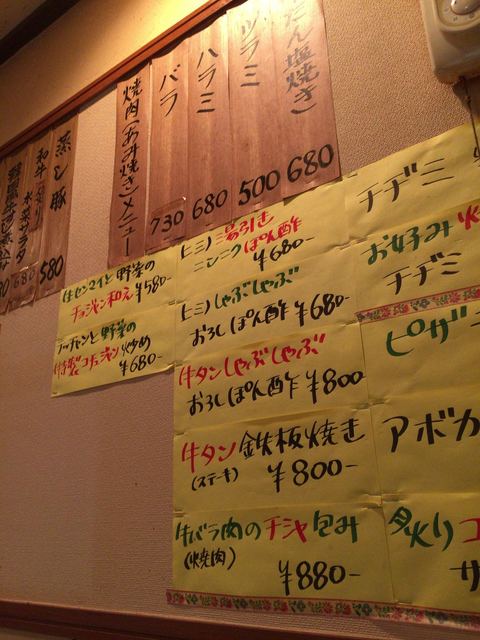 たん塩焼き)
680
ツラミ
500
ハラミ
680
バラ
730
焼肉(あみ焼き)メニュー
蒸し豚
580
和牛
水菜サラダ
680
チヂミ
お好み
チヂミ
ピザ
アボカ
炙り
サ
ヒミノ湯引き
ニンニクぽん酢
¥680-
ヒミノしゃぶしゃぶ
おろしぽん酢 ¥680-
牛タンしゃぶしゃぶ
おろしぽん酢 ¥800
牛タン鉄板焼き
(ステーキ) ¥800-
牛バラ肉のチシャ包み
(焼肉)
¥880-
牛センマイと野菜の
チョジャン和え ¥580-
テッチャンと野菜の
特製コチュジャン炒め
¥680-